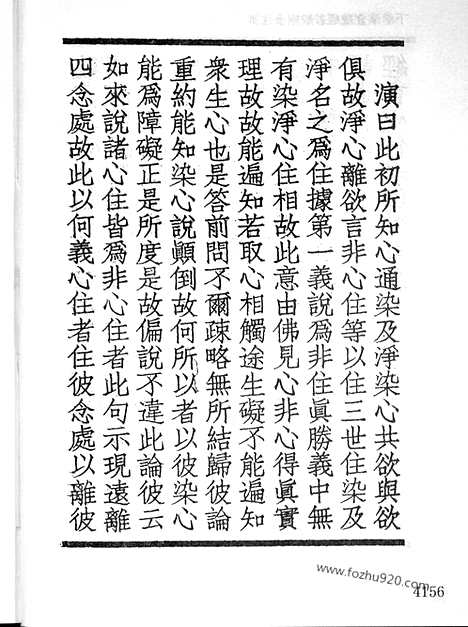 演曰此初所知心通染及淨染心共欲與欲
俱故淨心離欲言非心住等以住三世住染及
淨名之爲住據第一義說爲非住眞勝義中無
有染淨心住相故此意由佛見心非心得眞實
理故故能遍知若取心相觸途生礙不能遍知
衆生心也是答前問不爾疎略無所結歸彼論
重約能知染心說顚倒故何所以者以彼染心
能爲障礙正是所度是故偏說不違此論彼云
如來說諸心住皆爲非心住者此句示現遠離
四念處故此以何義心住者住彼念處以離彼
www.fozhu920.com
4156